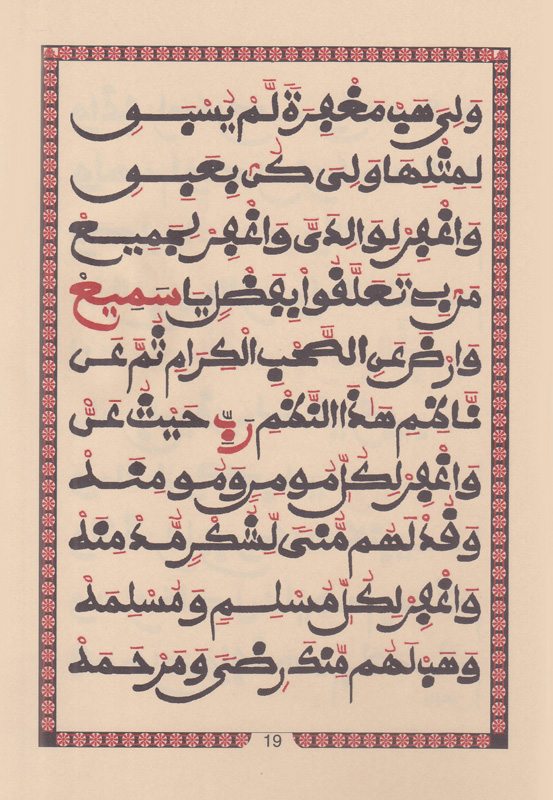 وَلِي هَبْ مَغْفِرَةً لَّمْ يَسْبِقِ
لِمِثْلِهَا وَلِي كُنْ بِعَبِقِ
وَاغْفِرْ لِوَالِدَيَّ وَاغْفِرْ لِجَمِيعْ
مَن بِي تَعَلَّقُوا بِفَضْلٍ يَا سَمِيعْ
وَارْضَ عَنِ الصَّحْبِ الْكِرَامِ ثُمَّ عَن
نَّاظِمِ هَذَا النَّظْمِ رَبِّ حَيْثُ عَنّ
وَاغْفِرْ لِكُلِّ مُومِنٍ وَمُومِنَهْ
وَقُدْ لَهُم مِّنِّي لِشُكْرٍ مُّدْمِنَهْ
وَاغْفِرْ لِكُلِّ مُسْلِمٍ وَمُسْلِمَهْ
وَهَبْ لَهُم مِّنكَ رِضًى وَمَرْحَمَهْ
19